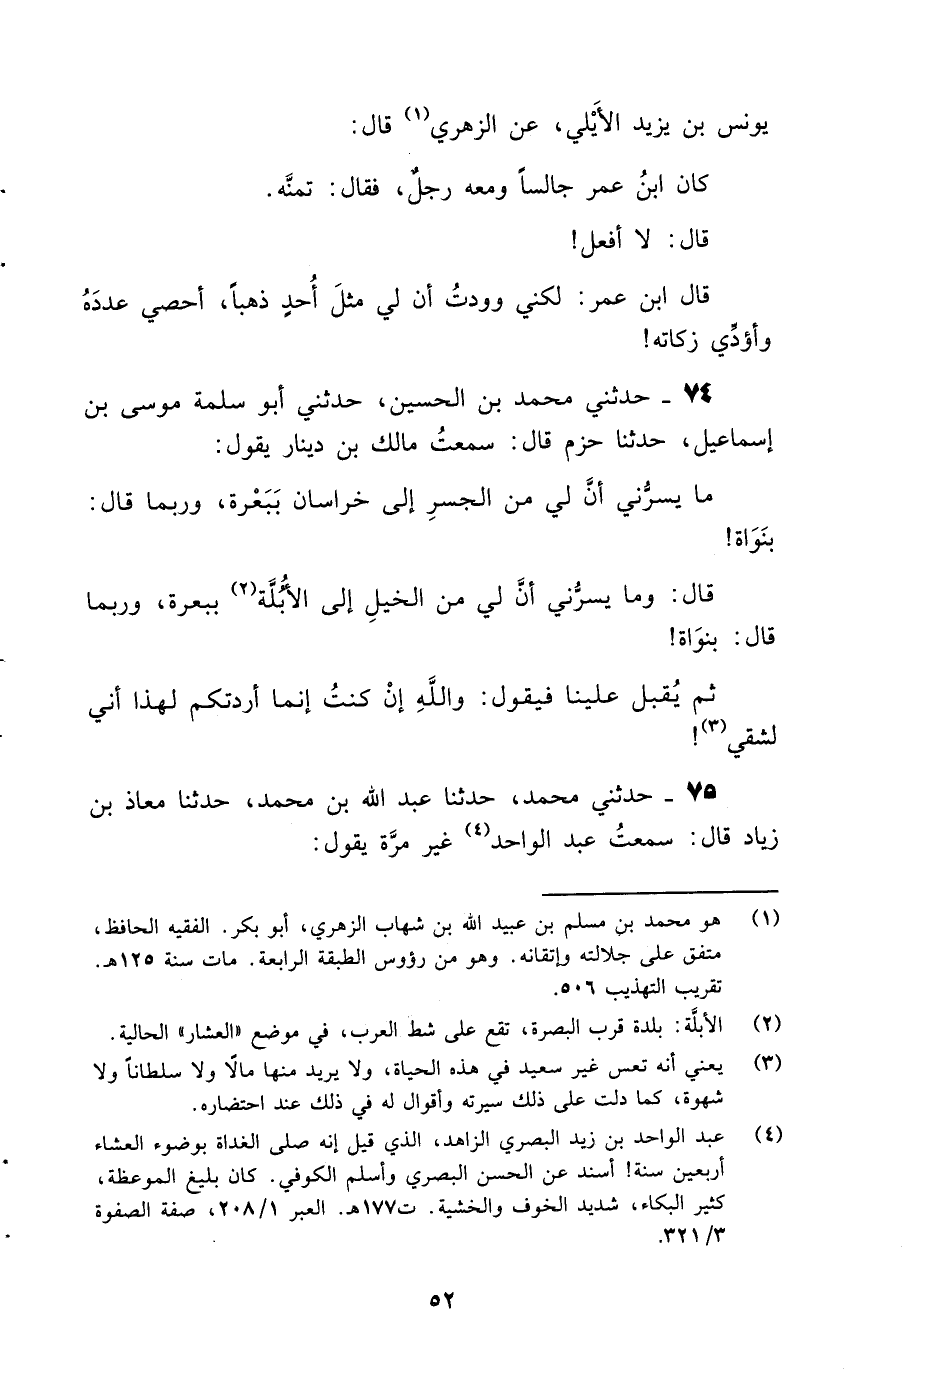 يونس بن يزيد الأَيْلي، عن الزهري(١) قال:
كان ابنُ عمر جالساً ومعه رجلٌ، فقال: تمنَّه.
قال: لا أفعل!
قال ابن عمر: لكني وودتُ أن لي مثلَ أُحدٍ ذهباً، أحصي عددَهُ
وأؤدِّي زكاته!
٧٤ ـ حدثني محمد بن الحسين، حدثني أبو سلمة موسى بن
إسماعيل، حدثنا حزم قال: سمعتُ مالك بن دينار يقول:
ما يسرُّني أنَّ لي من الجسرِ إلى خراسان بَبَعْرة، وربما قال:
بنَوَاة!
قال: وما يسرُّني أنَّ لي من الخيلِ إلى الأُبُلَّة(٢) ببعرة، وربما
قال: بنوَاة!
ثم يُقبل علينا فيقول: واللَّهِ إنْ كنتُ إنما أردتكم لهذا أني
لشقي(٣)!
٧٥ ـ حدثني محمد، حدثنا عبد الله بن محمد، حدثنا معاذ بن
زياد قال: سمعتُ عبد الواحد(٤) غير مرَّة يقول:
(١) هو محمد بن مسلم بن عبيد الله بن شهاب الزهري، أبو بكر. الفقيه الحافظ،
متفق على جلالته وإتقانه. وهو من رؤوس الطبقة الرابعة. مات سنة ١٢٥هـ.
تقريب التهذيب ٥٠٦.
(٢) الأبلَّة: بلدة قرب البصرة، تقع على شط العرب، في موضع «العشار» الحالية.
(٣) يعني أنه تعس غير سعيد في هذه الحياة، ولا يريد منها مالًا ولا سلطاناً ولا
شهوة، كما دلت على ذلك سيرته وأقوال له في ذلك عند احتضاره.
(٤) عبد الواحد بن زيد البصري الزاهد، الذي قيل إنه صلى الغداة بوضوء العشاء
أربعين سنة! أسند عن الحسن البصري وأسلم الكوفي. كان بليغ الموعظة،
كثير البكاء، شديد الخوف والخشية. ت١٧٧هـ. العبر ٢٠٨/١، صفة الصفوة
٣٢١/٣.
٥٢